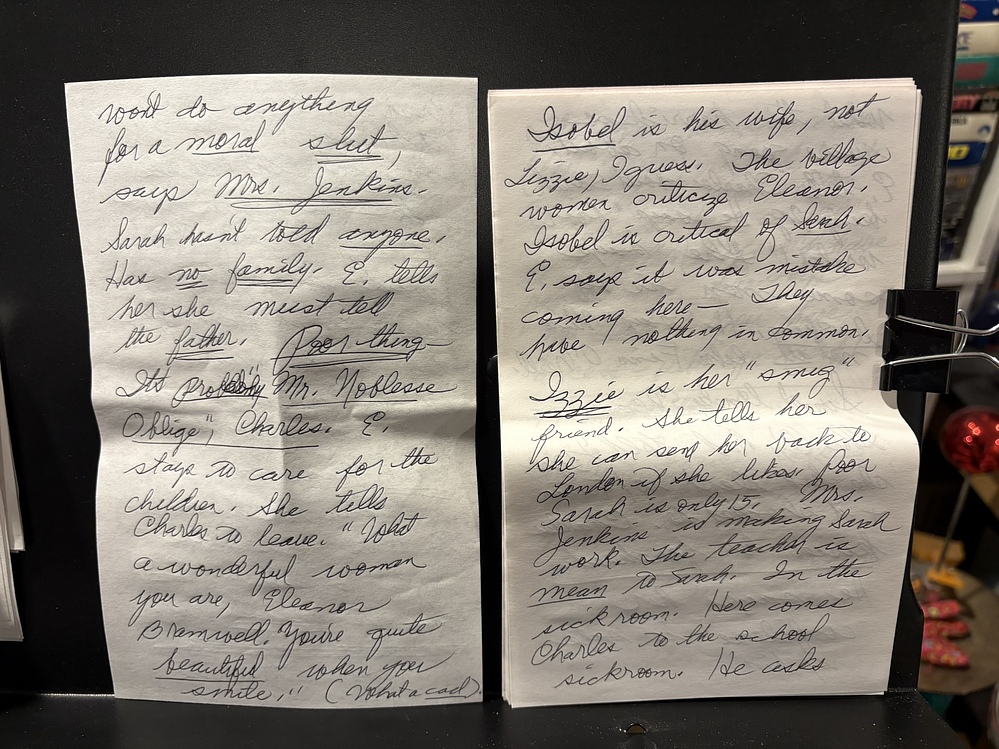 won't do anything
for a moral slut,
says Mrs. Jenkins.
Sarah hasn't told anyone.
Has no family. E. tells
her she must tell
the father. Poor thing—
It's probably Mr. Noblesse
Oblige", Charles. E.
stays to care for the
children. She tells
Charles to leave. "What
a wonderful woman
you are, Eleanor
Bramwell. You're quite
beautiful when you
smile." (What a cad).
Isobel is his wife, not
Lizzie, I guess. The village
women criticize Eleanor.
Isobel is critical of Sarah.
E. says it was mistake
coming here— They
have nothing in common.
Izzie is her "smug"
friend. She tells her
she can send her back to
London if she likes. Poor
Sarah is only 15. Mrs.
Jenkins is making Sarah
work. The teacher is
mean to Sarah. In the
sickroom. Here comes
Charles to the school
sickroom. He asks